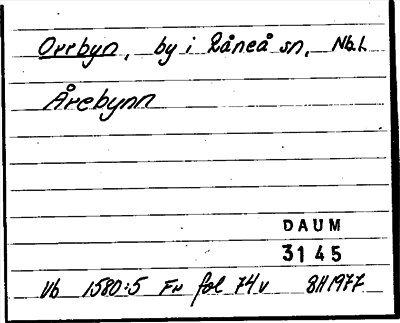 Orrbyn, by i Råneå sn, Nb.l.
Årebynn
DAUM
3145
Vb 1580:5 Fu fol 74v 8H1977